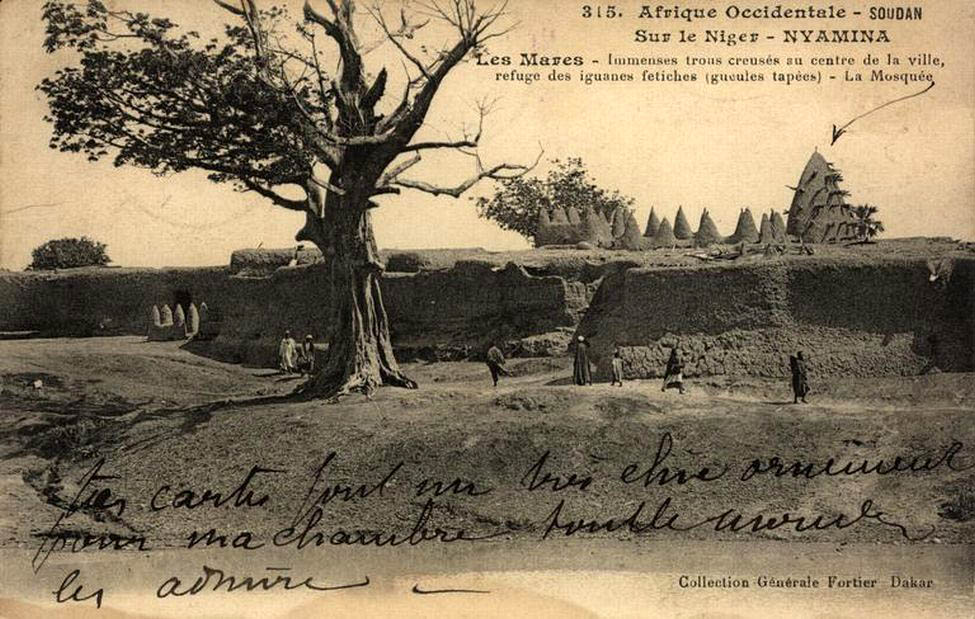 315. Afrique Occidentale - SOUDAN
Sur le Niger - NYAMINA
Les Mares - Immenses trous creusés au centre de la ville,
refuge des iguanes fetiches (gueules tapées) - La Mosquée
tes cartes font un très chic ornement
pour ma chambre tout le monde
les admire
Collection Générale Fortier Dakar